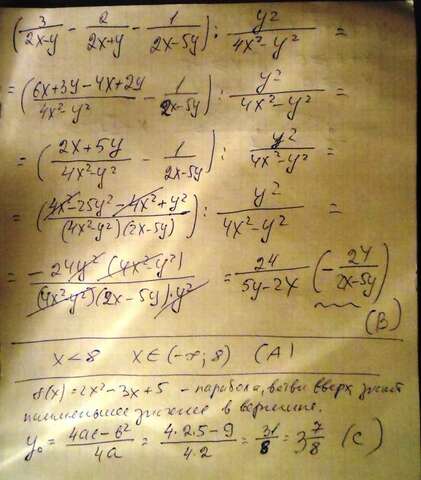 (3/(2x-y) - 2/(2x+y) - 1/(2x-5y)) : y²/(4x²-y²) =
= ((6x+3y-4x+2y)/(4x²-y²) - 1/(2x-5y)) : y²/(4x²-y²) =
= ((2x+5y)/(4x²-y²) - 1/(2x-5y)) : y²/(4x²-y²) =
= ((4x²-25y²-4x²+y²)/((4x²-y²)(2x-5y))) : y²/(4x²-y²) =
= (-24y²(4x²-y²))/((4x²-y²)(2x-5y)·y²) = 24/(5y-2x) (-24/(2x-5y))
(B)
x<8 x∈(-∞; 8) (A)
f(x)=2x²-3x+5 - парабола, ветви вверх, значит
наименьшее значение в вершине.
y₀ = (4ac-b²)/(4a) = (4·2·5-9)/(4·2) = 31/8 = 3 7/8 (C)